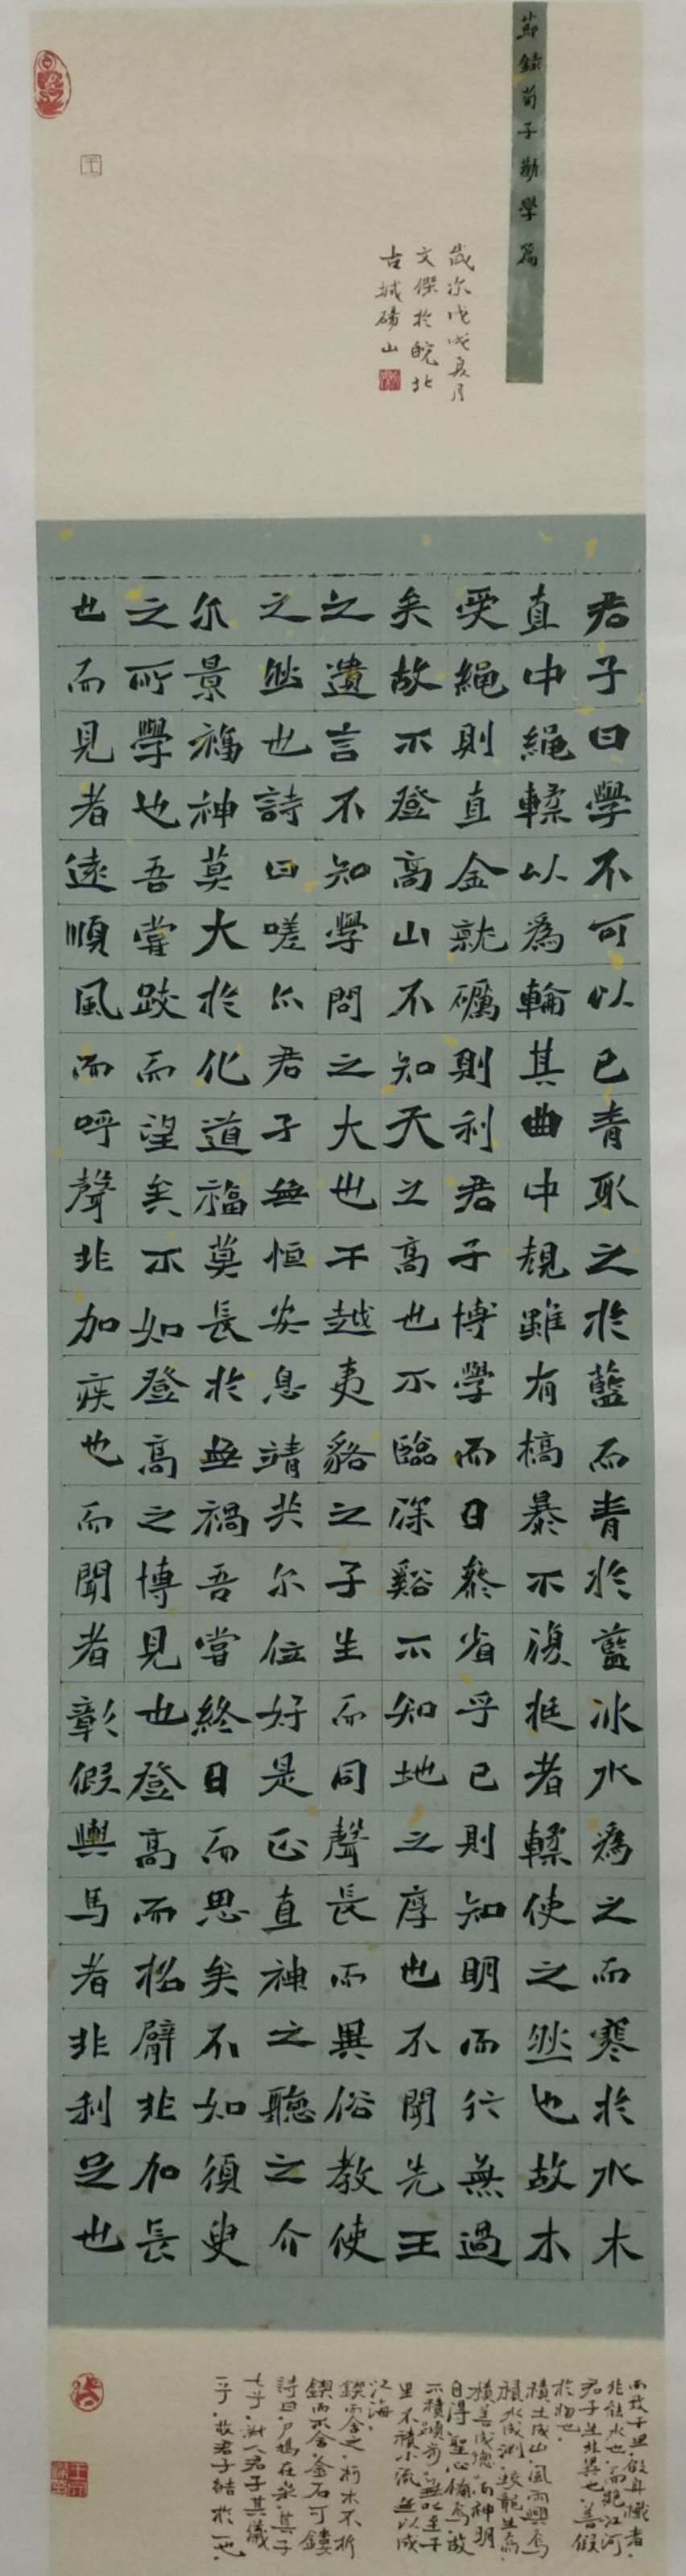 節錄荀子勸學篇
歲次戊戌夏月
文傑於皖北
古城碭山
君子曰學不可以已青取之於藍而青於藍冰水為之而寒於水木
直中繩輮以為輪其曲中規雖有槁暴不復挺者輮使之然也故木
受繩則直金就礪則利君子博學而日參省乎己則知明而行無過
矣故不登高山不知天之高也不臨深谿不知地之厚也不聞先王
之遺言不知學問之大也干越夷貉之子生而同聲長而異俗教使
之然也詩曰嗟尒君子無恒安息靖共尔位好是正直神之聽之介
尔景福神莫大於化道福莫長於無禍吾嘗終日而思矣不如須臾
之所學也吾嘗跂而望矣不如登高之博見也登高而招臂非加長
也而見者遠順風而呼聲非加疾也而聞者彰假輿馬者非利足也
而致千里假舟檝者
非能水也而絕江河
君子生非異也善假
於物也
積土成山風雨興焉
積水成淵蛟龍生焉
積善成德而神明
自得聖心備焉故
不積蹞步無以至千
里不積小流無以成
江海
鍥而舍之朽木不折
鍥而不舍金石可鏤
詩曰尸鳩在桑其子
七兮淑人君子其儀
一兮故君子結於一也